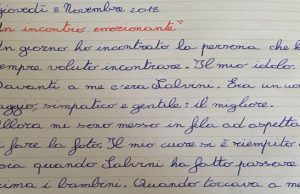 giovedì 8 Novembre 2018
Un incontro emozionante"
Un giorno ho incontrato la persona che h
empre voluto incontrare. Il mio idolo.
Davanti a me c'era Salvini. Era un uo
aggio, simpatico e gentile: il migliore.
llora mi sono messo in fila ad aspetta
i fare la foto. Il mio cuore si è riempito d
oia quando Salvini ha fatto passare
rima i bambini. Quando toccava a m